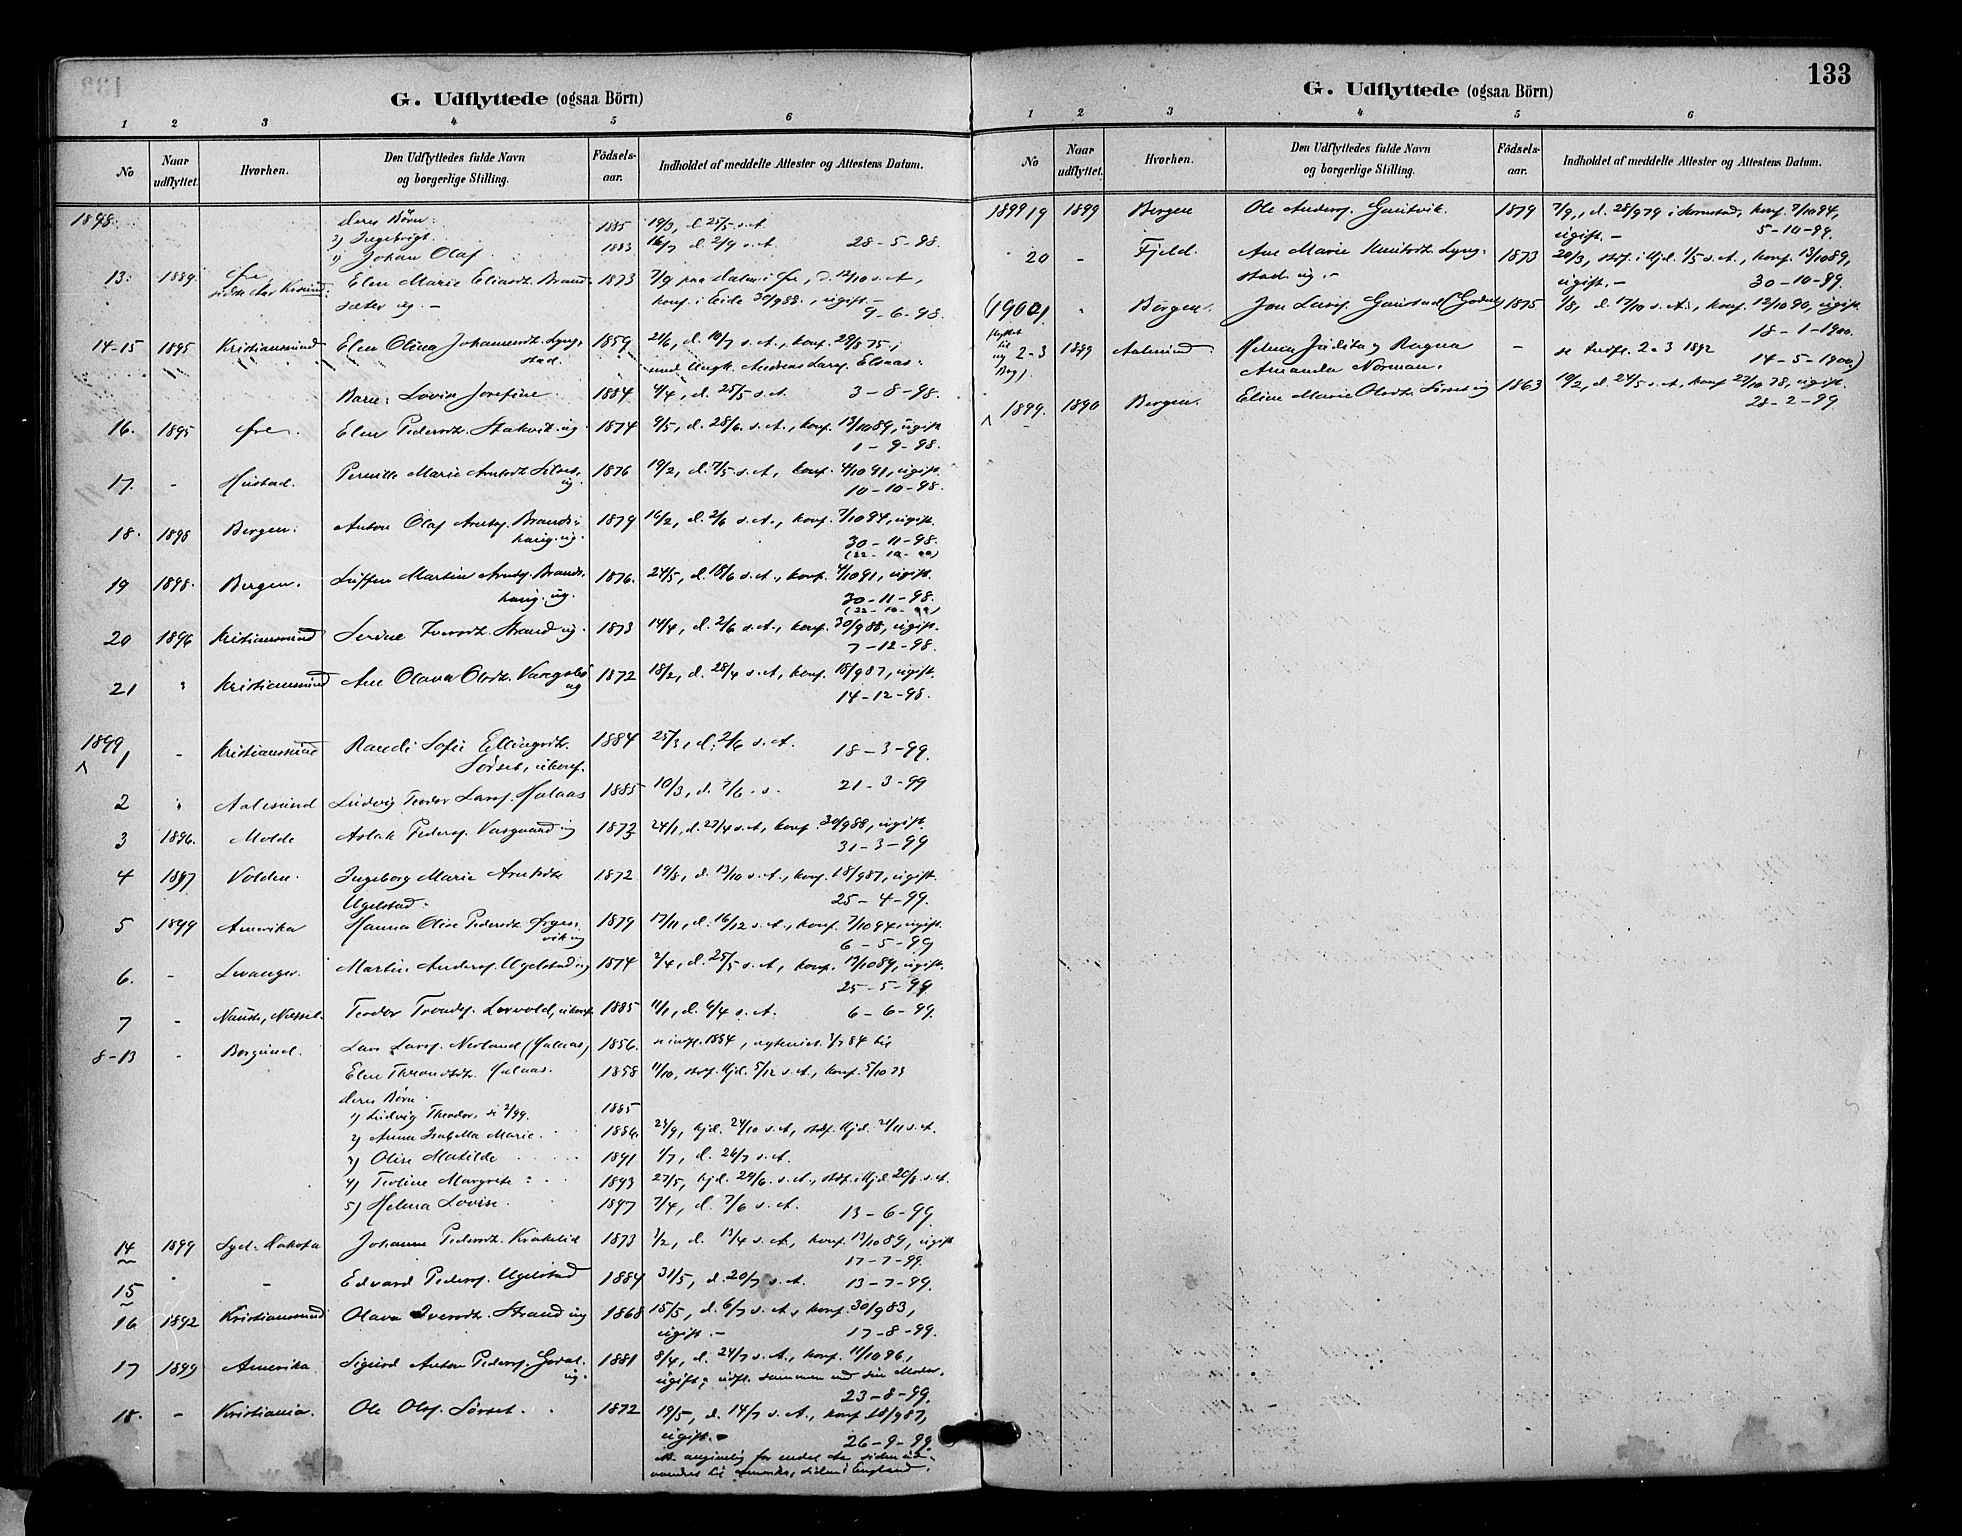 G. Udflyttede (ogsaa Börn)
1 2 3 4 5 6
No Naar udflyttet. Hvorhen. Den Udflyttedes fulde Navn og borgerlige Stilling. Födsels-aar. Indholdet af meddelte Attester og Attestens Datum.
1898. deres Børn:
2) Ingebrigt 1885 19/3, d. 25/5 s. A.
1) Johan Olaf 1883 16/7 d. 2/9 s. A. 28-5-98.
13. 1889. Øre Elen Marie Eliasdt. Brand- 1873 7/9 paa Dalen i Øre, d. 12/10 s. A.,
sæter ug. - konf. i Eide 30/9 88., ugift. -
9-6-98.
14-15 1895 Kristiansund Elen Olina Johannesdt. Lyng- 1859 21/6, d. 10/7 s. A., konf. 29/8 75,
stad. med Ungk. Andreas Lars. Elnaas.
Barn: Lovise Josefine. 1884 4/4, d. 25/5 s. A. 3-8-98.
16. 1895 Øre. Elen Pedersdt. Stakvik ug. 1874 9/5, d. 28/6. s. A., konf. 13/10 89, ugift
1-9-98.
17. - Hustad. Pernille Marie Arntsdt. 1876 19/2, d. 7/5 s. A, konf. 4/10 91, ugift.
ug. 10-10-98.
18. 1898 Bergen. Anton Olaf Arnts. Brands- 1879 16/2, d. 2/6 s. A., konf. 7/10 94, ugift.
haug. ug. 30-11-98.
19 1898. Bergen. Steffen Martin Arnts. Brands- 1876. 24/5, d. 18/6 s. A., konf. 4/10 91, ugift.
haug. ug. 30-11-98.
20 1896 Kristiansund Serine Iversdt. Strand ug. 1873 14/4, d. 2/6 s. A., konf. 30/9 88, ugift.
7-12-98.
21 " Kristiansund Ane Olava Olsdt. 1872 18/2, d. 28/4 s. A., konf. 18/9 87, ugift
ug 14-12-98.
1899 1 - Kristiansund Randi Sofie Ellingsdt. 1884 25/3, d. 2/6 s. A. 18-3-99.
Sørset, ukonf.
2 " Aalesund Ludvig Teodor Lars. Halaas 1885 10/3, d. 7/6. s. 21-3-99
3 1896. Molde Aslak Peders. Vasgaard ug 1872 24/1, d. 27/4 s. A, konf. 30/9 88, ugift.
31-3-99
4 1897 Volden. Ingeborg Marie Arntsdt. 1872 19/8, d. 13/10 s. A., konf. 18/9 87, ugift.
Ugelstad. 25-4-99.
5 1899 Amerika Hanna Oline Pedersdt. Ørgen- 1879 17/11, d. 16/12 s. A., konf. 7/10 94, ugift.
vik ug 6-5-99
6. - Levanger. Martin Anders. Ugelstad ug 1874 2/4, d. 25/5 s. A, konf. 13/10 89, ugift.
25-5-99
7 - Nauste, Nesset. Teodor Tronds. Lervold, ukonf. 1885 11/1, d. 6/4 s. A. 6-6-99.
8-13 - Borgund. Lars Lars. Nerland (Halaas) 1856. se indfl. 1884,
Elen Throndsdt. Halaas. 1858 11/10, stdf. hjd. 5/12 s. A., konf. 5/10 73
deres Børn.
1) Ludvig Theodor, se 2/99. 1885
2) Anna Isabella Marie. 1886. 25/9, hjd. 24/10 s. A, stdf. kjd. 21/11 s. A.
3) Oline Matilde 1891 1/7, d. 26/7 s. A.
4) Teoline Margrete 1893 27/5, hjd. 24/6. s. A., stdf. i kjd 20/8 s. A.
5) Helena Lovise. 1897 7/4, d. 7/6 s. A. 13-6-99.
14 1899 Syd-Dakota Johanne Pedersdt. Krakelid 1873 3/2, d. 13/4 s. A, konf. 13/10 89, ugift
17-7-99.
15 - Edvard Peders. Ugelstad 1884 31/5, d. 20/7 s. A. 13-7-99.
16 1892 Kristiansund Olava Iversdt. Strand ug 1868 15/5, d. 6/7 s. A, konf. 30/9 83,
ugift. - 17-8-99.
17 1899 Amerika Sigurd Anton Peders. 1881 8/4, d. 24/7 s. A., konf. 11/10 96,
ug. ugift; udfl. sammen med sin Moder.
23-8-99.
18. - Kristiania. Ole Ols. Sørset. 1872 19/5, d. 14/7 s. A., konf. 18/9 87,
ugift. 26-9-99
133
G. Udflyttede (ogsaa Börn)
1 2 3 4 5 6
No Naar udflyttet. Hvorhen. Den Udflyttedes fulde Navn og borgerlige Stilling. Födsels-aar. Indholdet af meddelte Attester og Attestens Datum.
1899 19 1899 Bergen Ole Anders. Gautvik. 1879 7/9, d. 28/9 79 i Kornstad, konf. 7/10 94,
ugift. - 5-10-99.
20 - Fjeld. Ane Marie Knutsdt. Lyng- 1873 20/3, stdf. i kjd. 1/5 s. A., konf. 13/10 89,
stad ug. - ugift. - 30-10-99.
(1900 1. " Bergen. Jon Lars. Gaustad 1875 1/8, d. 17/10 s. A., konf. 12/10 90, ugift
18-1-1900.
flyttet til ny Bog). 2-3 1899 Aalesund. Helena Judita og Ragna - se Indfl. 2-3 1892
Amanda Norman. 14-5-1900)
1899. 1890 Bergen. Eline Marie Olsdt. Sørset ug 1863 19/2, d. 24/5 s. A, konf 27/10 78, ugift.
28-2-99